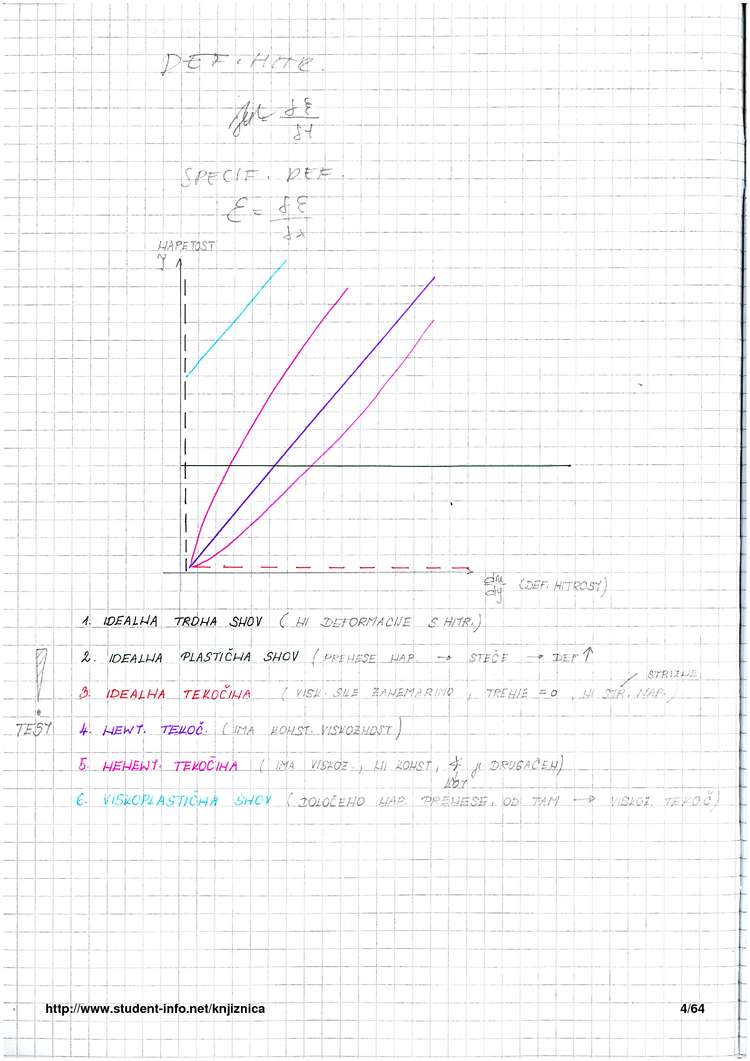 DEF. HITR.
δε
δt
SPECIF. DEF.
ε = δε
δx
NAPETOST
du
dy (DEF. HITROST)
1. IDEALNA TRDNA SNOV ( NI DEFORMACIJE S HITR.)
2. IDEALNA PLASTIČNA SNOV (PRENESE NAP. → STEČE → DEF↑
STRIŽNE
3. IDEALNA TEKOČINA ( VISK. SILE ZANEMARIMO, TRENJE = 0, NI STR. NAP.)
TEST 4. NEWT. TEKOČ. (IMA KONST. VISKOZNOST)
5. NENEWT. TEKOČINA ( IMA VISKOZ., NI KONST, ∢ je DRUGAČEN)
KOT
6. VISKOPLASTIČNA SNOV (DOLOČENO NAP. PRENESE, OD TAM → VISKOZ. TEKOČ)
http://www.student-info.net/knjiznica 4/64